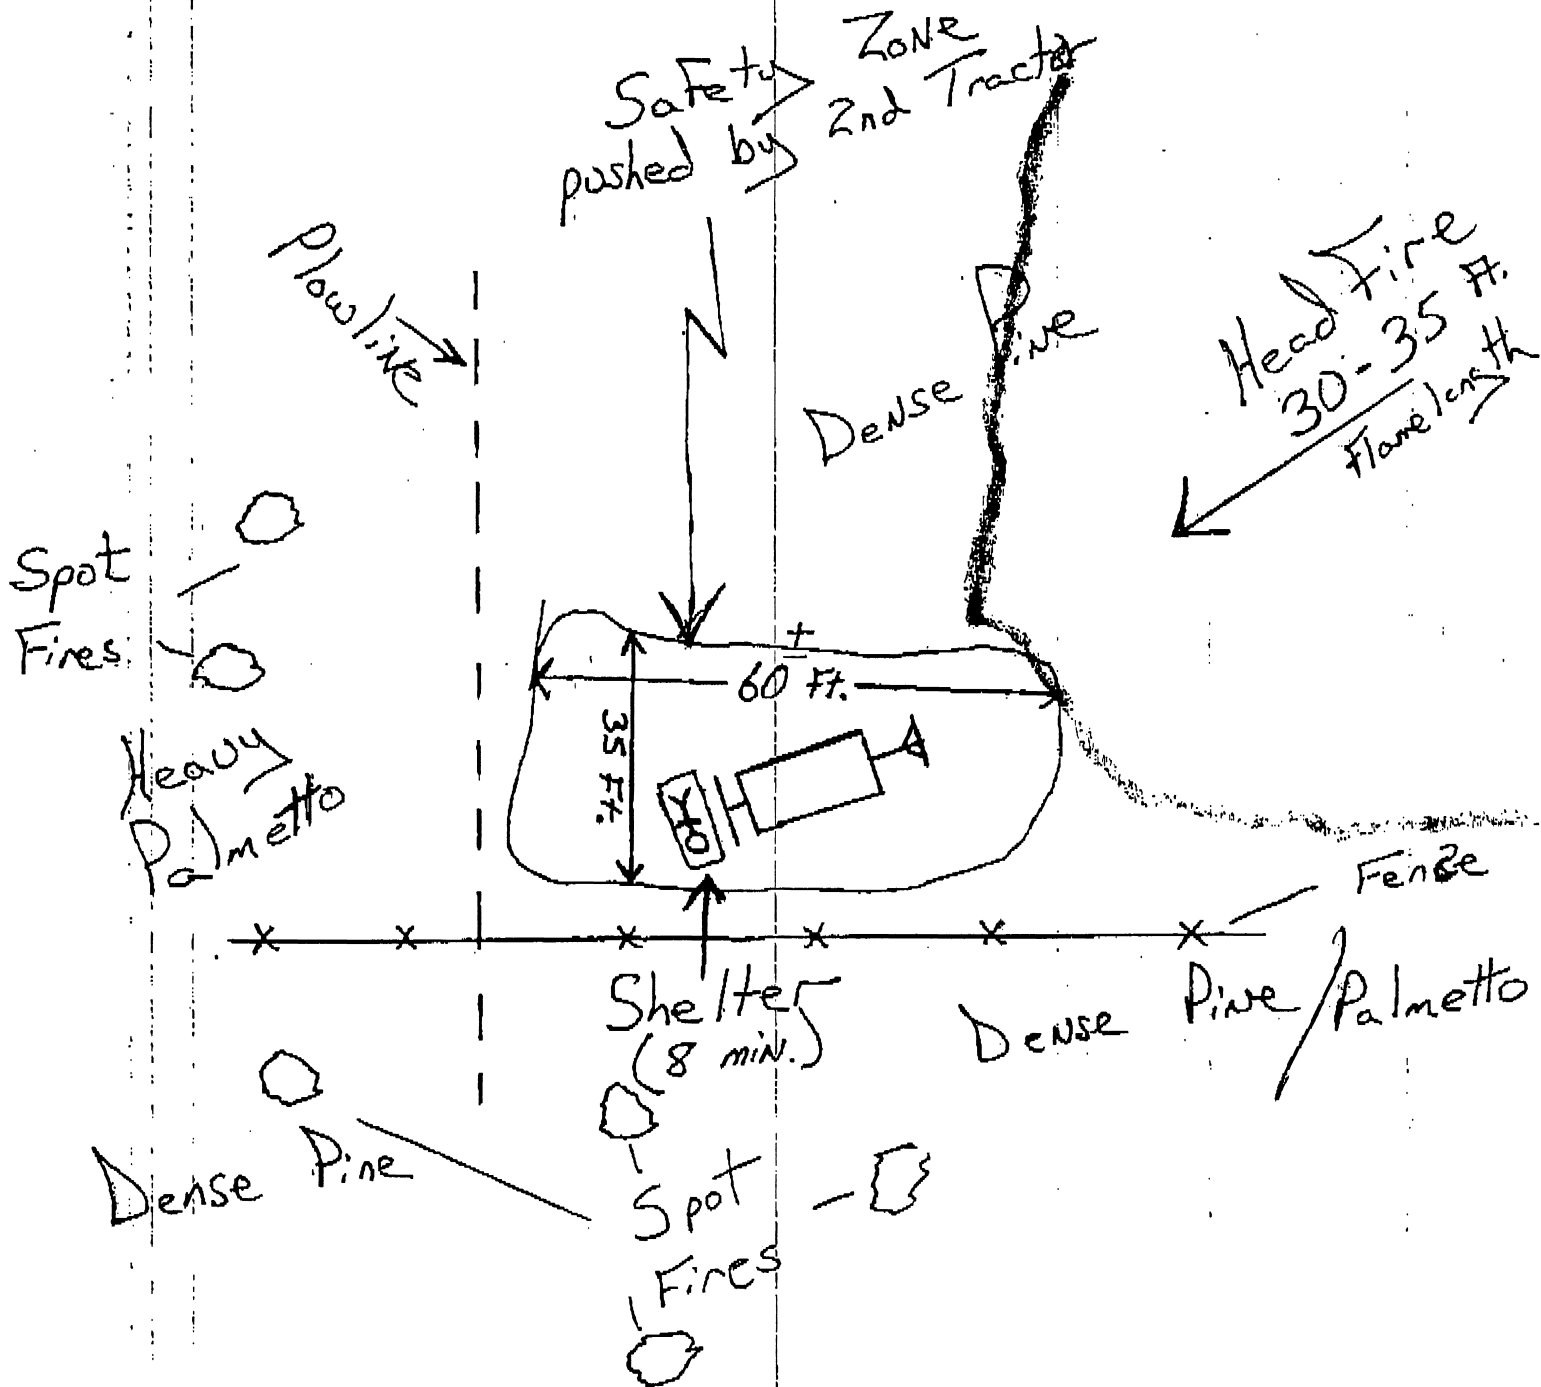 Safety Zone
pushed by 2nd Tractor
Plowline
Dense Pine
Head Fire
30-35 Ft.
Flame length
Spot
Fires
± 
60 Ft.
35 Ft.
Heavy
Palmetto
Fence
Shelter
(8 min.)
Dense Pine/Palmetto
Dense Pine
Spot
Fires